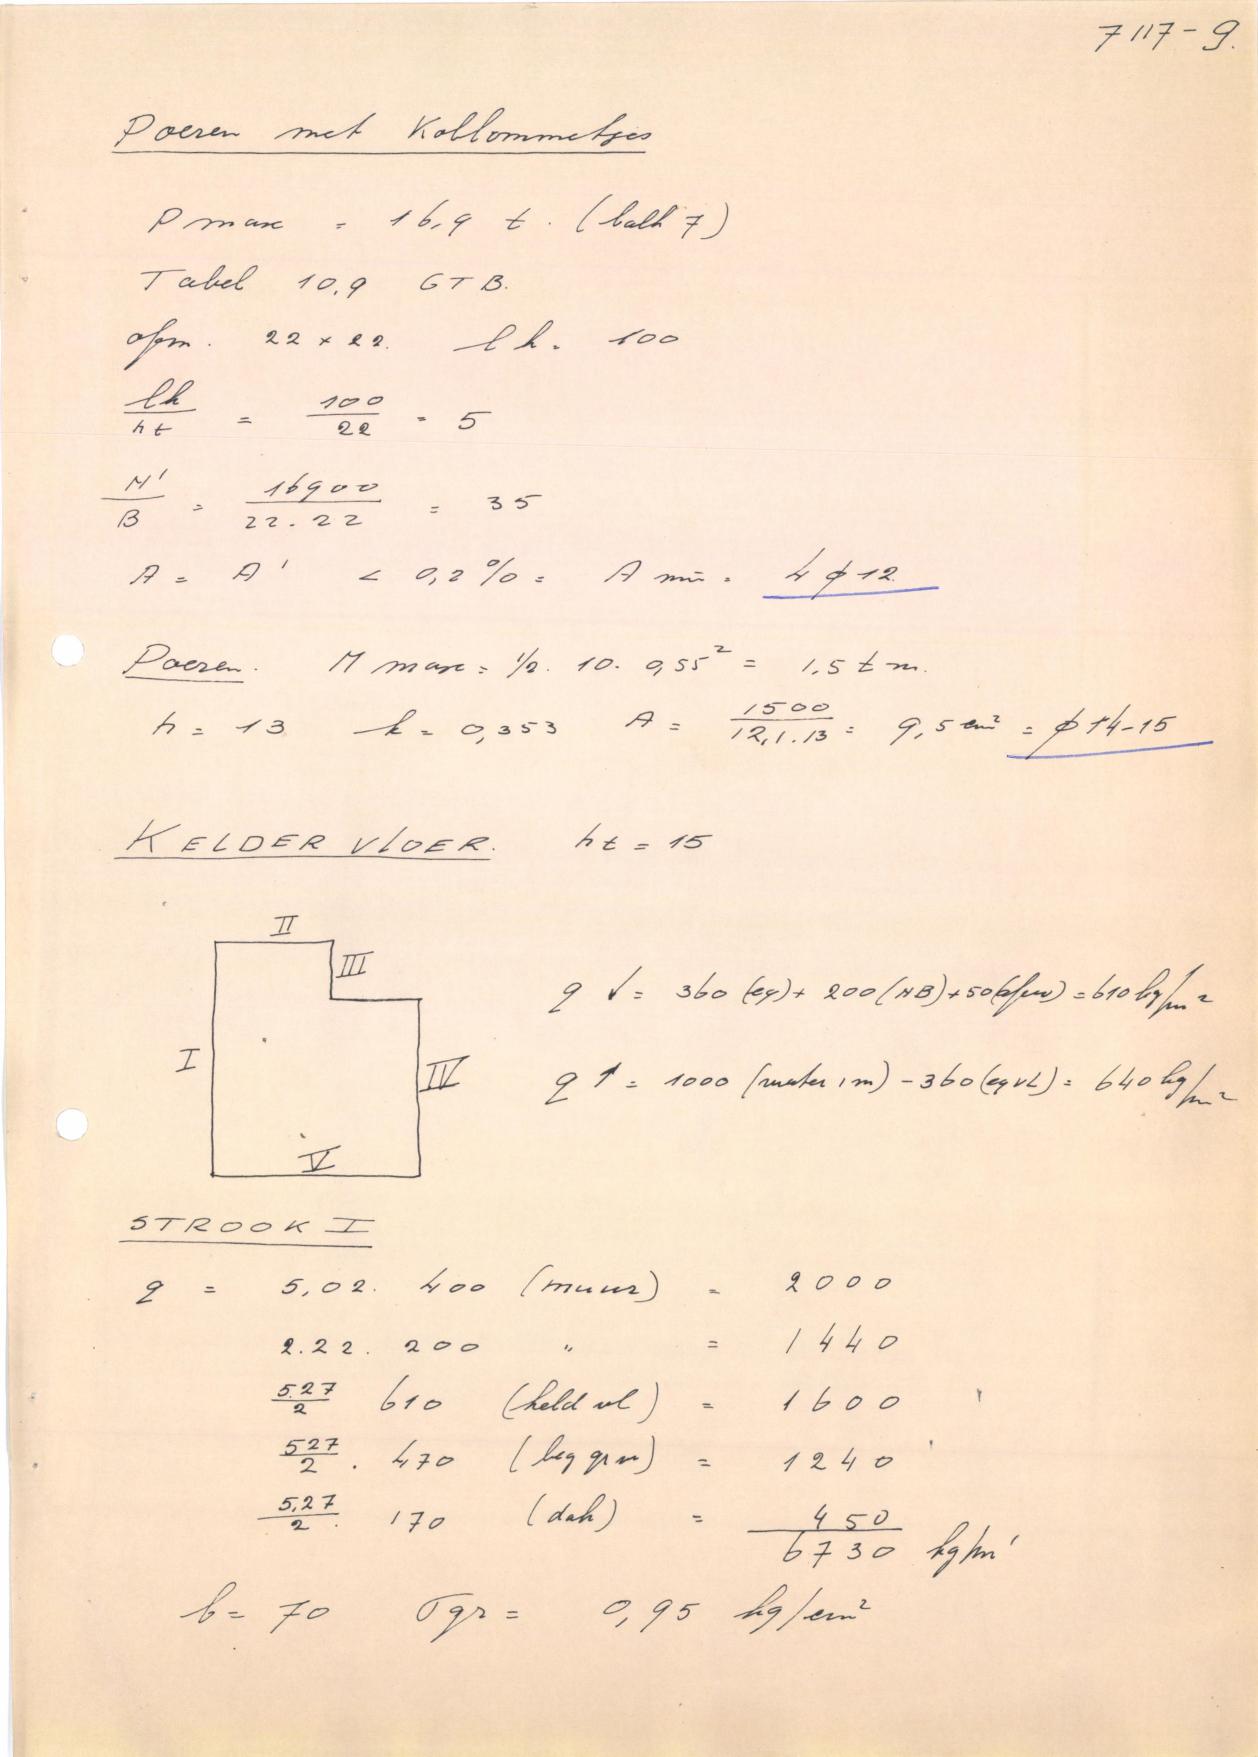 7117-9.
Poeren met Kollommetjes
P max = 16,9 t. (balk 7)
Tabel 10.9 GTB.
afm. 22 x 22. lk = 100
lk/ht = 100/22 = 5
N'/B = 16900/22.22 = 35
A = A' < 0,2% = A min = 4 ϕ 12
Poeren. M max = 1/2. 10. 0,55² = 1,5 tm.
h = 13 k = 0,353 A = 1500/12,1.13 = 9,5 cm² = ϕ 14-15
KELDERVLOER. ht = 15
II
III
q ↓ = 360 (eg) + 200 (NB) + 50 (afw) = 610 kg/m²
I
IV
q ↑ = 1000 (water 1m) - 360 (eg vl) = 640 kg/m²
V
STROOK I
q = 5,02. 400 (muur) = 2000
2.22. 200 " = 1440
5.27/2 610 (keld vl) = 1600
527/2 . 470 (beg gr v) = 1240
5,27/2 . 170 (dak) = 450
6730 kg/m'
b = 70 σgr = 0,95 kg/cm²